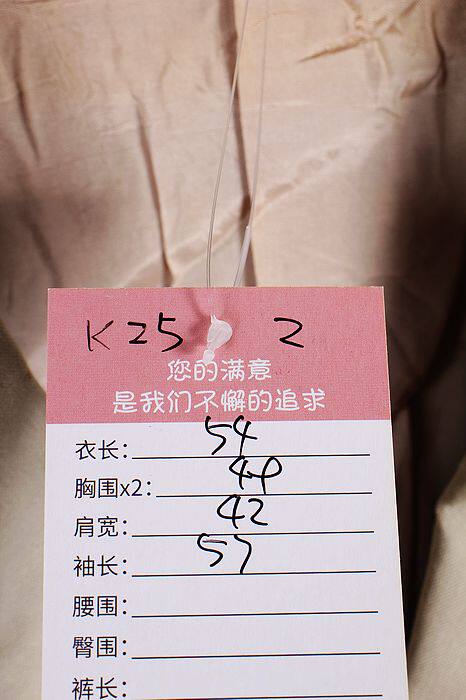 K25 2
您的满意
是我们不懈的追求
衣长: 54
胸围x2: 44
肩宽: 42
袖长: 57
腰围:
臀围:
裤长: